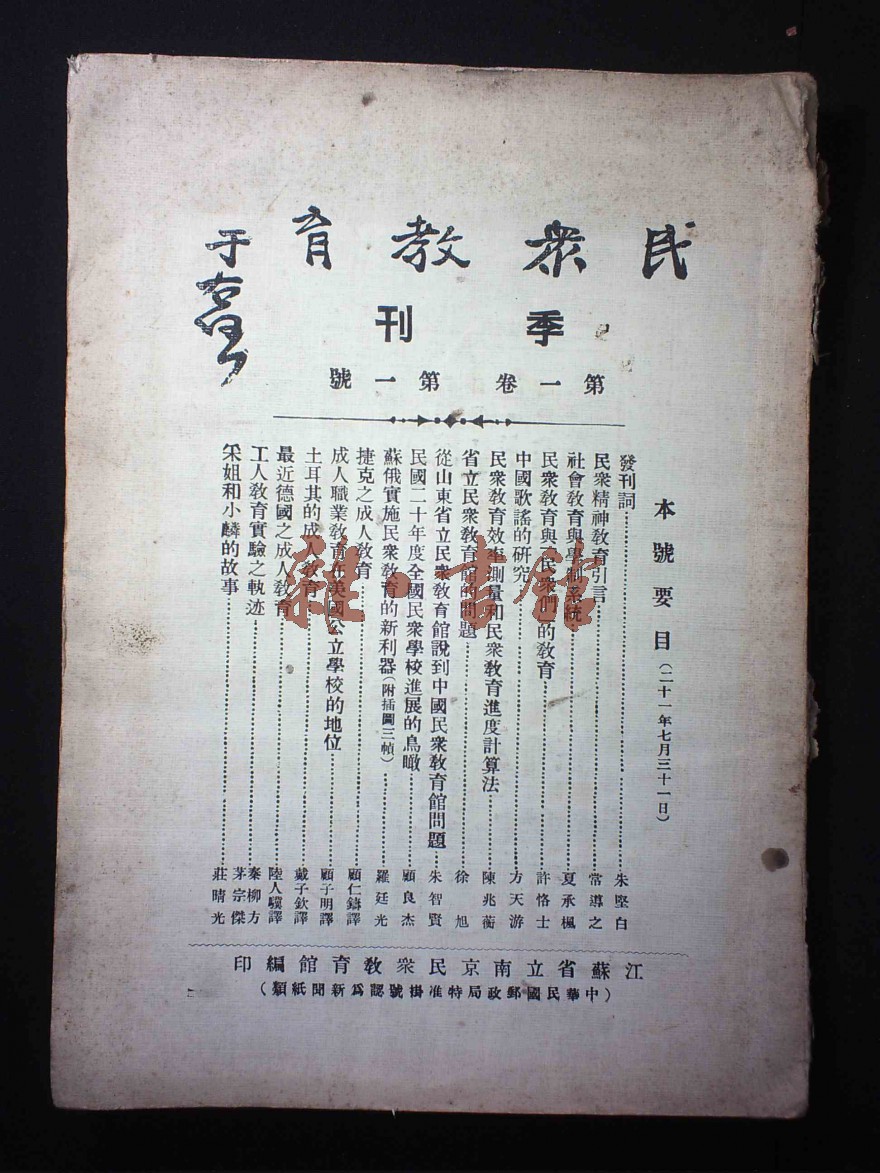 民衆教育
季刊
于右任
第一卷 第一號
本號要目(二十一年七月三十一日)
發刊詞……朱堅白
民衆精神教育引言……常導之
社會教育與學制系統……夏承楓
民衆教育與民衆們的教育……許恪士
中國歌謠的研究……方天游
民衆教育效率測量和民衆教育進度計算法……陳兆蘅
省立民衆教育館的問題……徐旭
從山東省立民衆教育館說到中國民衆教育館問題……朱智賢
民國二十年度全國民衆學校進展的鳥瞰……顧良杰
蘇俄實施民衆教育的新利器(附插圖三幀)……羅廷光
捷克之成人教育……顧仁鑄譯
成人職業教育在美國公立學校的地位……顧子明譯
土耳其的成人教育……戴子欽譯
最近德國之成人教育……陸人驥譯
工人教育實驗之軌迹……秦柳方 茅宗傑
采姐和小麟的故事……莊晴光
江蘇省立南京民衆教育館編印
(中華民國郵政局特准掛號認爲新聞紙類)
雜·書館